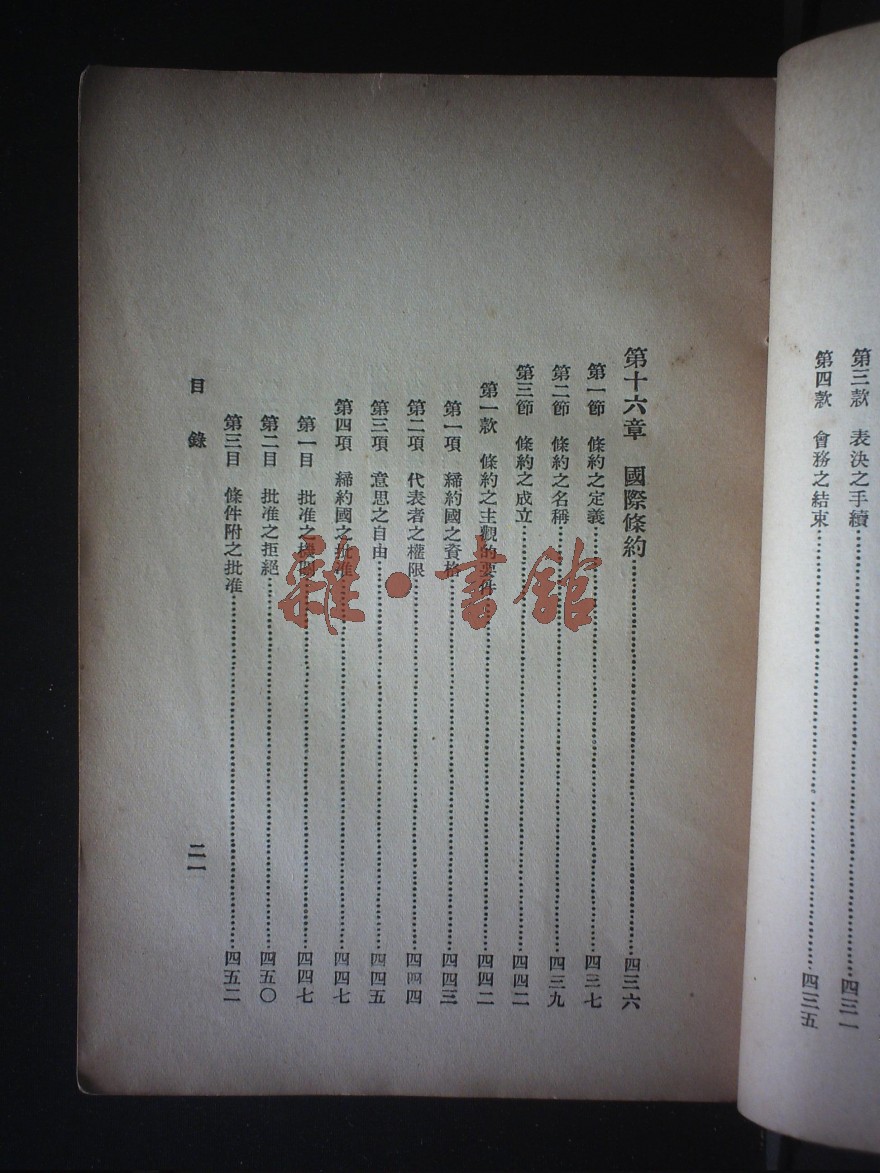 第三款　表決之手續……四三一
第四款　會務之結束……四三五
第十六章　國際條約……四三六
第一節　條約之定義……四三七
第二節　條約之名稱……四三九
第三節　條約之成立……四四二
第一款　條約之主觀的要件……四四二
第一項　締約國之資格……四四三
第二項　代表者之權限……四四四
第三項　意思之自由……四四五
第四項　締約國之批准……四四七
第一目　批准之機關……四四七
第二目　批准之拒絕……四五〇
第三目　條件附之批准……四五二
目錄
二一
雜·書館